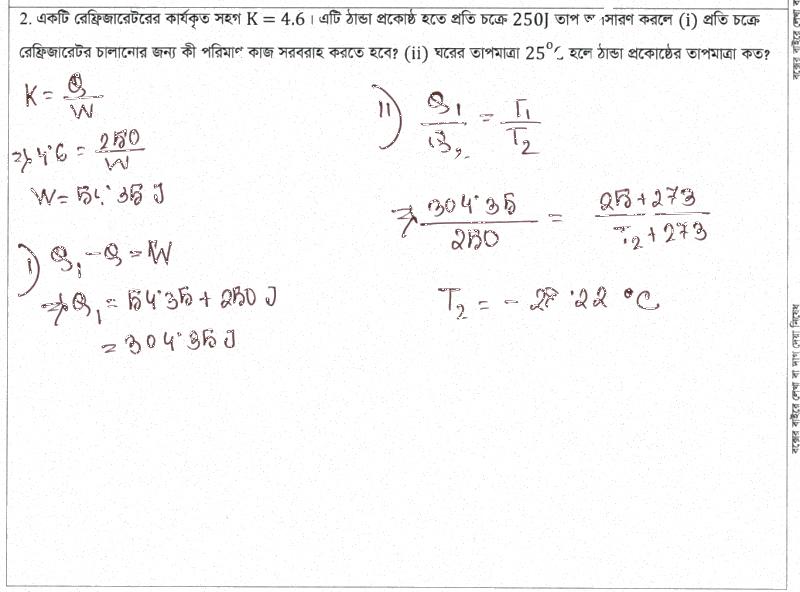 2. একটি রেফ্রিজারেটরের কার্যকৃত সহগ K = 4.6। এটি ঠান্ডা প্রকোষ্ঠ হতে প্রতি চক্রে 250J তাপ সারণ করলে (i) প্রতি চক্রে
রেফ্রিজারেটর চালানোর জন্য কী পরিমাণ কাজ সরবরাহ করতে হবে? (ii) ঘরের তাপমাত্রা 25°C হলে ঠান্ডা প্রকোষ্ঠের তাপমাত্রা কত?
K = Q/W
⇒ 4.6 = 250/W
W = 54.35 J
i) Q₁ - Q = W
⇒ Q₁ = 54.35 + 250 J
= 304.35 J
ii) Q₁/Q₂ = T₁/T₂
⇒ 304.35/250 = 25+273/T₂+273
T₂ = - 28.22 °C
বক্সের বাইরে লেখা বা দাগ দেয়া নিষেধ